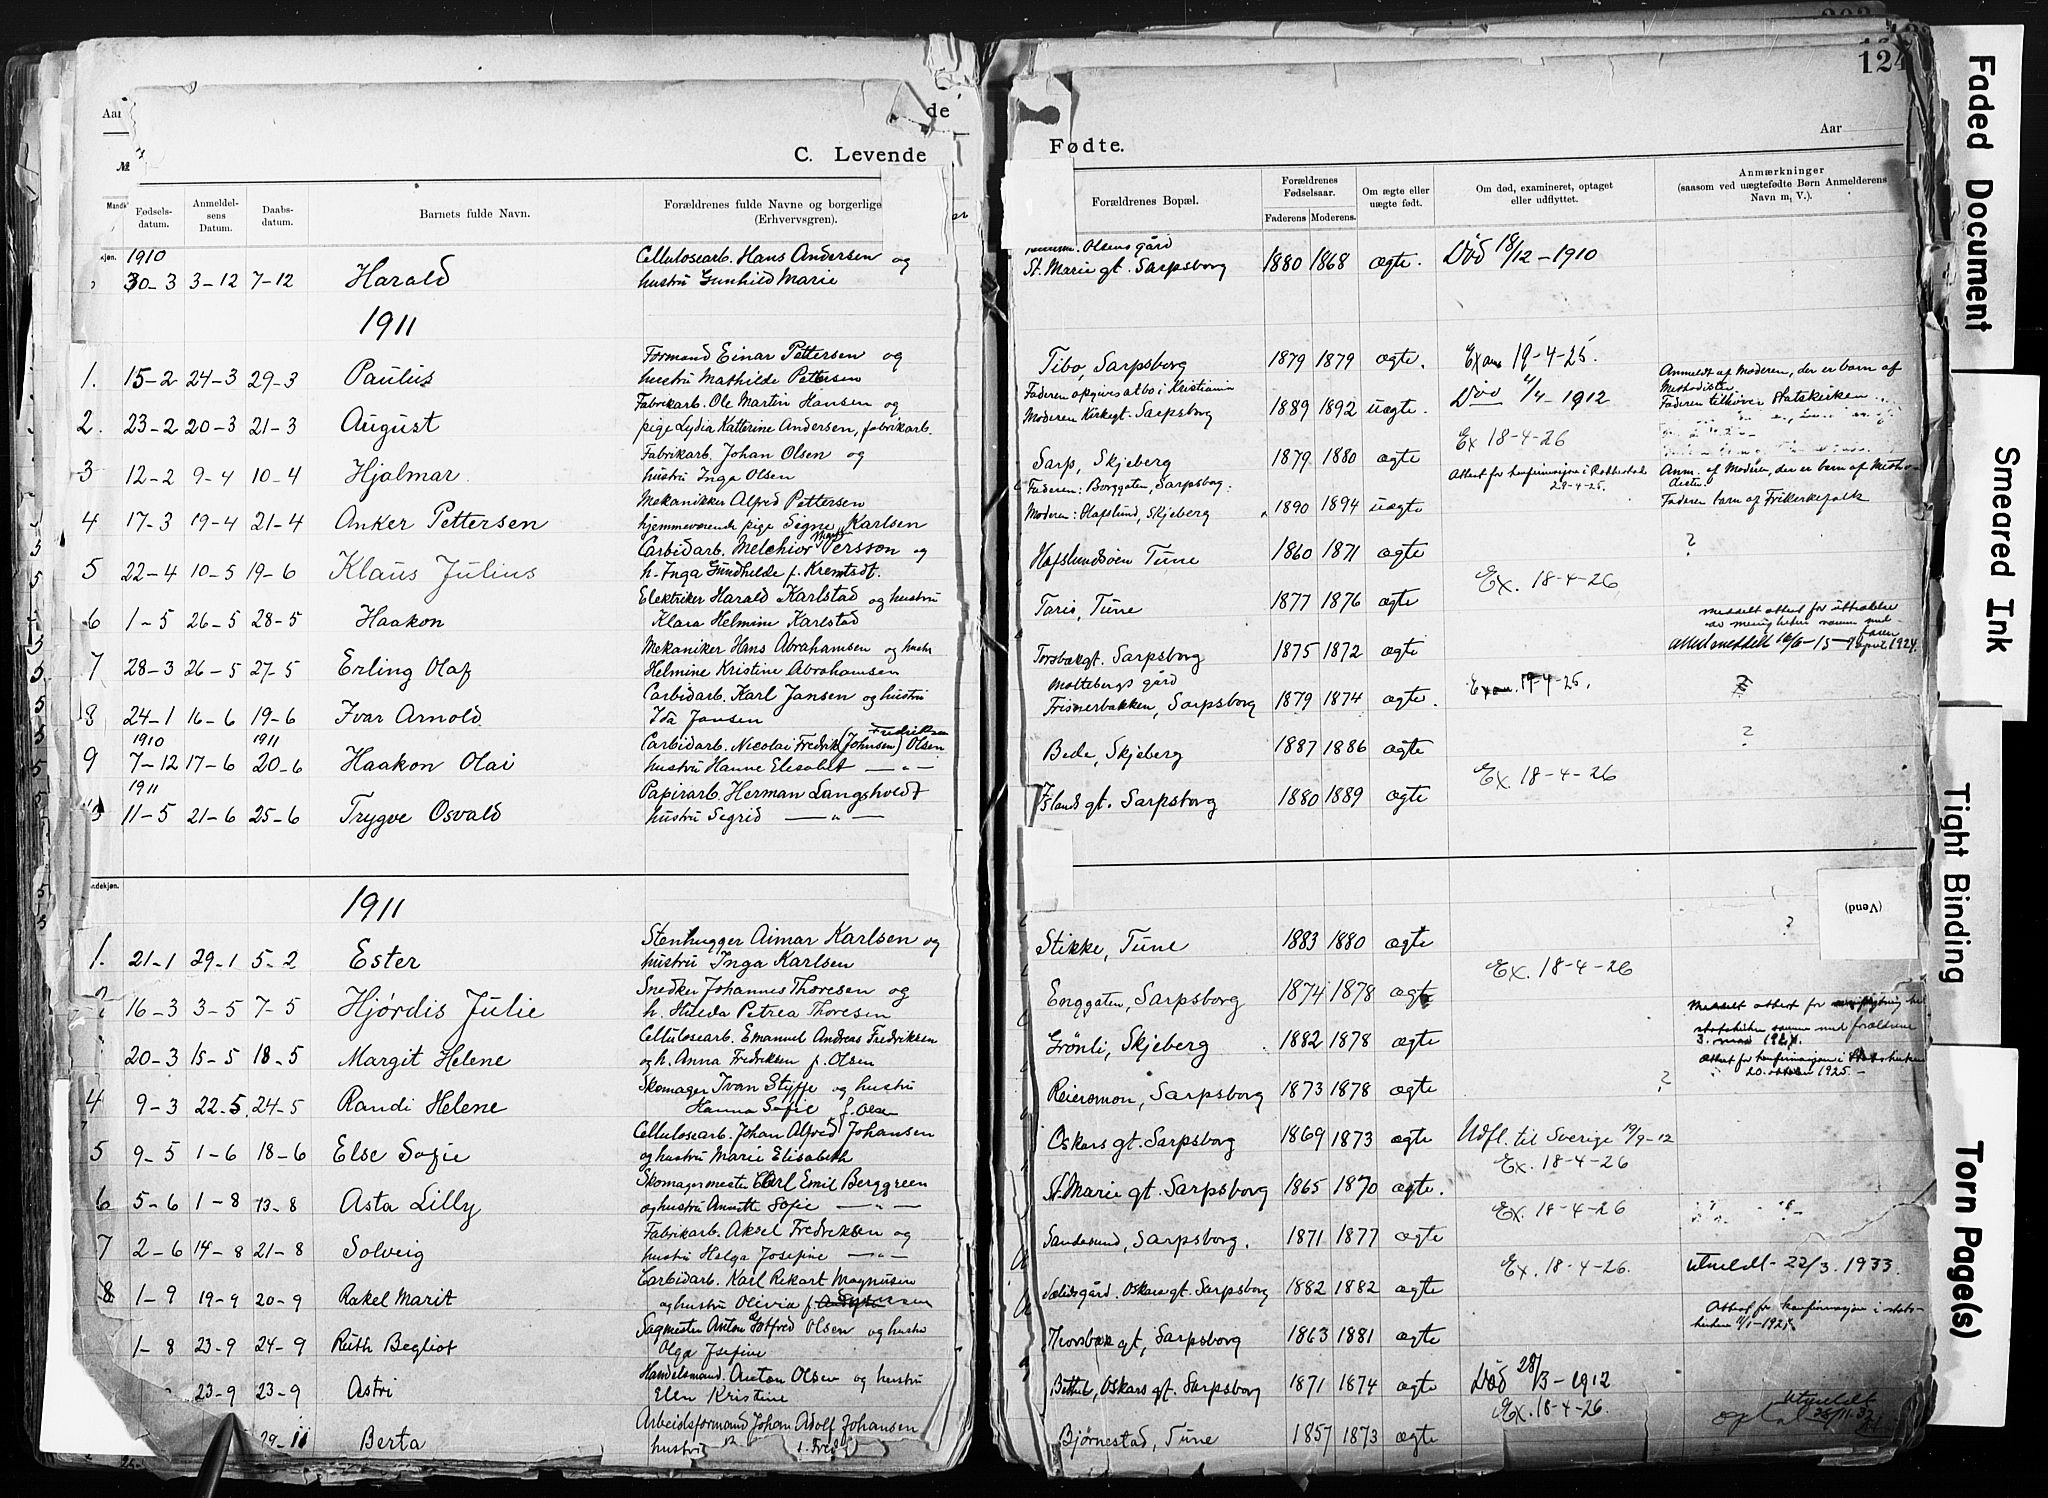 Aar
C. Levende
Fødte.
Aar
124
Fødselsdatum.
Anmeldelsens Datum.
Daabsdatum.
Barnets fulde Navn.
Forældrenes fulde Navne og borgerlige
(Erhvervsgren).
Forældrenes Bopæl.
Forældrenes Fødselsaar.
Faderens. Moderens.
Om ægte eller uægte født.
Om død, examineret, optaget eller udflyttet.
Anmærkninger
(saasom ved uægtefødte Børn Anmelderens Navn m. V.).
1910
Cellulosearb. Hans Andersen og
Olsens gård
30-3 3-12 7-12 Harald hustru Gunhild Marie St. Marie gt. Sarpsborg 1880 1868 ægte. Død 18/12-1910
1911
Formand Einar Pettersen og
1. 15-2 24-3 29-3 Paulus hustru Mathilde Pettersen Tibo Sarpsborg 1879 1879 ægte. Exam 19-4-25.
Anmeldt af Moderen, der er barn af
Methodister
Fabrikarb. Ole Martin Hansen og Faderen opgives at bo i Kristiania
2. 23-2 20-3 21-3 August pige Lydia Katterine Andersen, fabrikarb. Moderen Kirkegt. Sarpsborg 1889 1892 uægte. Død 4/4-1912 Faderen tilhører Statskirken
Fabrikarb. Johan Olsen og
3 12-2 9-4 10-4 Hjalmar hustru Inga Olsen Sarp, Skjeberg 1879 1880 ægte Ex 18-4-26
Mekanikker Alfred Pettersen Faderen: Borggaten, Sarpsborg.
Anm. af Moderen, der er barn af
4 17-3 19-4 21-4 Anker Pettersen hjemmeværende pige Signe Karlsen Moderen: Hafslund, Skjeberg 1890 1894 uægte 28-4-25. Faderen barn af Frikirkefolk
Carbidarb. Melchior Persson og
5 22-4 10-5 19-6 Klaus Julius h. Inga Gundhilde f. Kremstdt. Hafslundsøen Tune 1860 1871 ægte ?
Elektriker Harald Karlstad og hustru
6 1-5 26-5 28-5 Haakon Klara Helmine Karlstad Taris, Tune 1877 1876 ægte Ex. 18-4-26
Mekaniker Hans Abrahamsen og hustr
7 28-3 26-5 27-5 Erling Olaf Helmine Kristine Abrahamsen Torsbækgt. Sarpsborg 1875 1872 ægte
Carbidarb. Karl Jansen og hustru Moltebergs gård
8 24-1 16-6 19-6 Ivar Arnold Ida Jansen Frisnerbakken, Sarpsborg 1879 1874 ægte. Exam. 19-4-25.
1910 1911 Fredriksen
Carbidarb. Nicolai Fredrik (Johnsen) Olsen
9 7-12 17-6 20-6 Haakon Olai hustru Hanne Elisabet —„— Bede, Skjeberg 1887 1886 ægte ?
1911 Papirarb. Herman Langsholdt
11-5 21-6 25-6 Trygve Osvald hustru Sigrid —„— Islands gt. Sarpsborg 1880 1889 ægte Ex 18-4-26
(Vend)
1911
Stenhugger Aimar Karlsen og
1. 21-1 29-1 5-2 Ester hustru Inga Karlsen Stikke, Tune 1883 1880 ægte ?
Snedker Johannes Thoresen og
2 16-3 3-5 7-5 Hjørdis Julie h. Hilda Petrea Thoresen Enggaten, Sarpsborg 1874 1878 ægte Ex. 18-4-26
Cellulosearb. Emanuel Andreas Fredriksen
20-3 15-5 18-5 Margit Helene og h. Anna Fredriksen f. Olsen Grönli, Skjeberg 1882 1878 ægte
20. 1925-
Skomager Ivan Styffe og hustru
4 9-3 22-5 24-5 Randi Helene Hanna Sofie f. Olsen Reiersmon, Sarpsborg 1873 1878 ægte ?
Cellulosearb. Johan Alfred Johansen
5 9-5 1-6 18-6 Else Sofie og hustru Marie Elisabeth Oskars gt. Sarpsborg 1869 1873 ægte Udfl. til Sverige 19/9-12
Skomagermester Carl Emil Berggreen
6 5-6 1-8 13-8 Asta Lilly og hustru Annette Sofie —„— St. Marie gt. Sarpsborg 1865 1870 ægte. Ex. 18-4-26
Fabrikarb. Aksel Fredriksen og
7 2-6 14-8 21-8 Solveig hustru Helga Josefine —„— Sandesund, Sarpsborg. 1871 1877 ægte Ex. 18-4-26
Carbidarb. Karl Rikart Magnusen
8 1-9 19-9 20-9 Rakel Marit og hustru Olivia f. Oskars gt. Sarpsborg 1882 1882 ægte Ex. 18-4-26. Utmeldt 22/3. 1933.
Sagmester Anton Gotfred Olsen og hustru
1-8 23-9 24-9 Ruth Begliot Olga Josefine Thorsbæk gt, Sarpsborg 1863 1881 ægte
Handelsmand. Anton Olsen og hustru
23-9 23-9 Astri Elen Kristine Bethel, Oskars gt. Sarpsborg 1871 1874 ægte Død 28/3-1912
Arbeidsformand Johan Adolf Johansen
29-11 Berta hustru Bjørnestad, Tune 1857 1873 ægte Ex. 18-4-26. Utmeldt
Faded Document
Smeared Ink
Tight Binding
Torn Page(s)